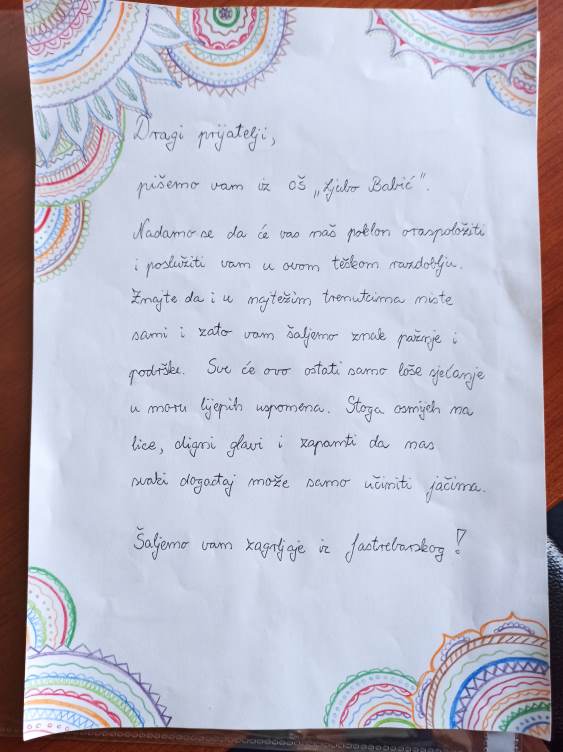 Dragi prijatelji,
pišemo vam iz OŠ „Ljubo Babić“.
Nadamo se da će vas naš poklon oraspoložiti
i poslužiti vam u ovom teškom razdoblju.
Znajte da i u najtežim trenutcima niste
sami i zato vam šaljemo znak pažnje i
podrške. Sve će ovo ostati samo loše sjećanje
u moru lijepih uspomena. Stoga osmijeh na
lice, digni glavi i zapamti da nas
svaki događaj može samo učiniti jačima.
Šaljemo vam zagrljaje iz Jastrebarskog!